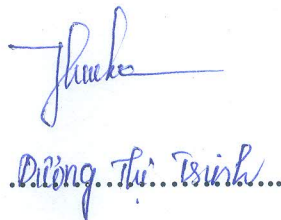 Dương Thị Trinh